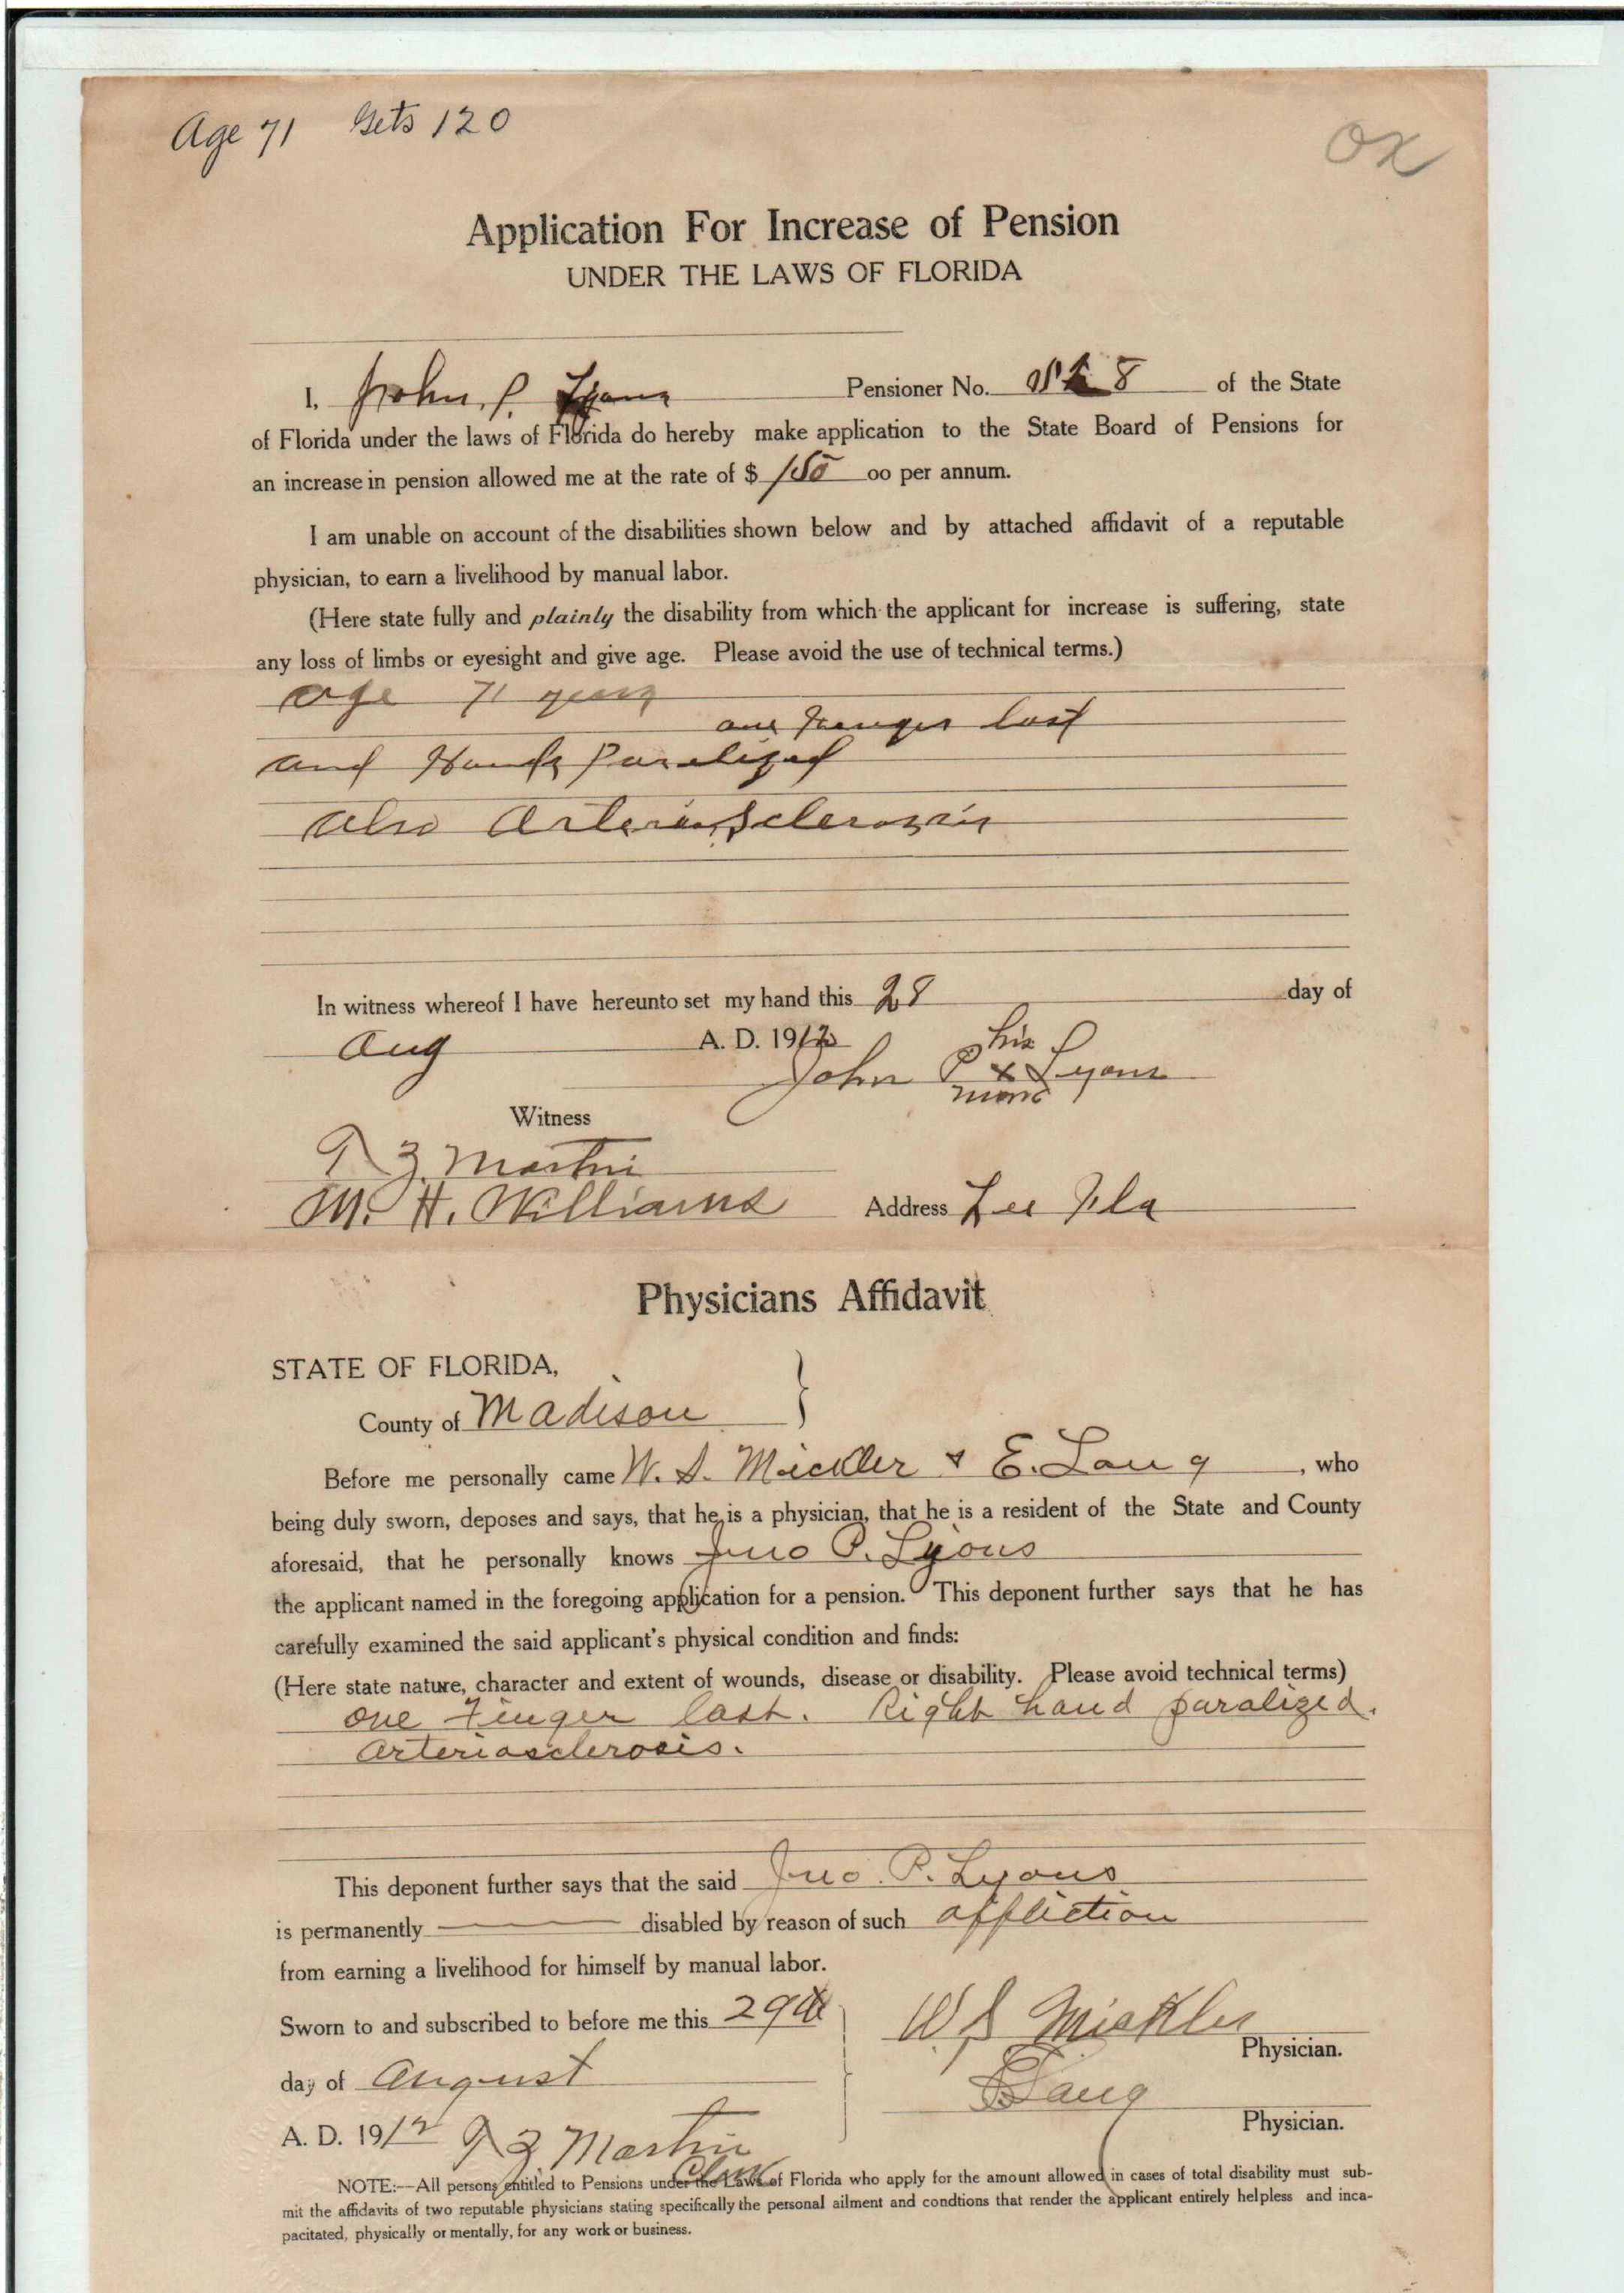 Age 71 Gets 120
OK
Application For Increase of Pension
UNDER THE LAWS OF FLORIDA
I, John P. Lyons Pensioner No. 8 of the State
of Florida under the laws of Florida do hereby make application to the State Board of Pensions for
an increase in pension allowed me at the rate of $ 150 00 per annum.
I am unable on account of the disabilities shown below and by attached affidavit of a reputable
physician, to earn a livelihood by manual labor.
(Here state fully and plainly the disability from which the applicant for increase is suffering, state
any loss of limbs or eyesight and give age. Please avoid the use of technical terms.)
age 71 years
one Finger lost
and Hand Paralized
also Arteriosclerosis
In witness whereof I have hereunto set my hand this 28 day of
Aug A. D. 1912
his
John P x Lyons
mark
Witness
T Z Martin
M. H. Williams Address Lee Fla
Physicians Affidavit
STATE OF FLORIDA,
County of Madison }
Before me personally came W. S. Mickler & E. Long, who
being duly sworn, deposes and says, that he is a physician, that he is a resident of the State and County
aforesaid, that he personally knows Jno P. Lyons
the applicant named in the foregoing application for a pension. This deponent further says that he has
carefully examined the said applicant's physical condition and finds:
(Here state nature, character and extent of wounds, disease or disability. Please avoid technical terms)
one Finger lost. Right hand paralized.
Arteriosclerosis.
This deponent further says that the said Jno. P. Lyons
is permanently disabled by reason of such affliction
from earning a livelihood for himself by manual labor.
Sworn to and subscribed to before me this 29th
W S Mickler
Physician.
day of August
E Long
Physician.
A. D. 1912 T Z Martin
Clerk
NOTE:—All persons entitled to Pensions under the Laws of Florida who apply for the amount allowed in cases of total disability must sub-
mit the affidavits of two reputable physicians stating specifically the personal ailment and condtions that render the applicant entirely helpless and inca-
pacitated, physically or mentally, for any work or business.